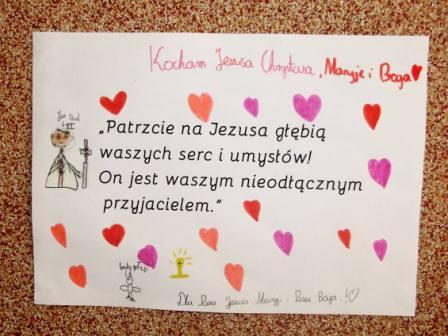 Kocham Jezusa Chrystusa, Maryje i Boga
Jan Paweł II
„Patrzcie na Jezusa głębią
waszych serc i umysłów!
On jest waszym nieodłącznym
przyjacielem.”
Dla Pana Jezusa Maryji i Pana Boga!